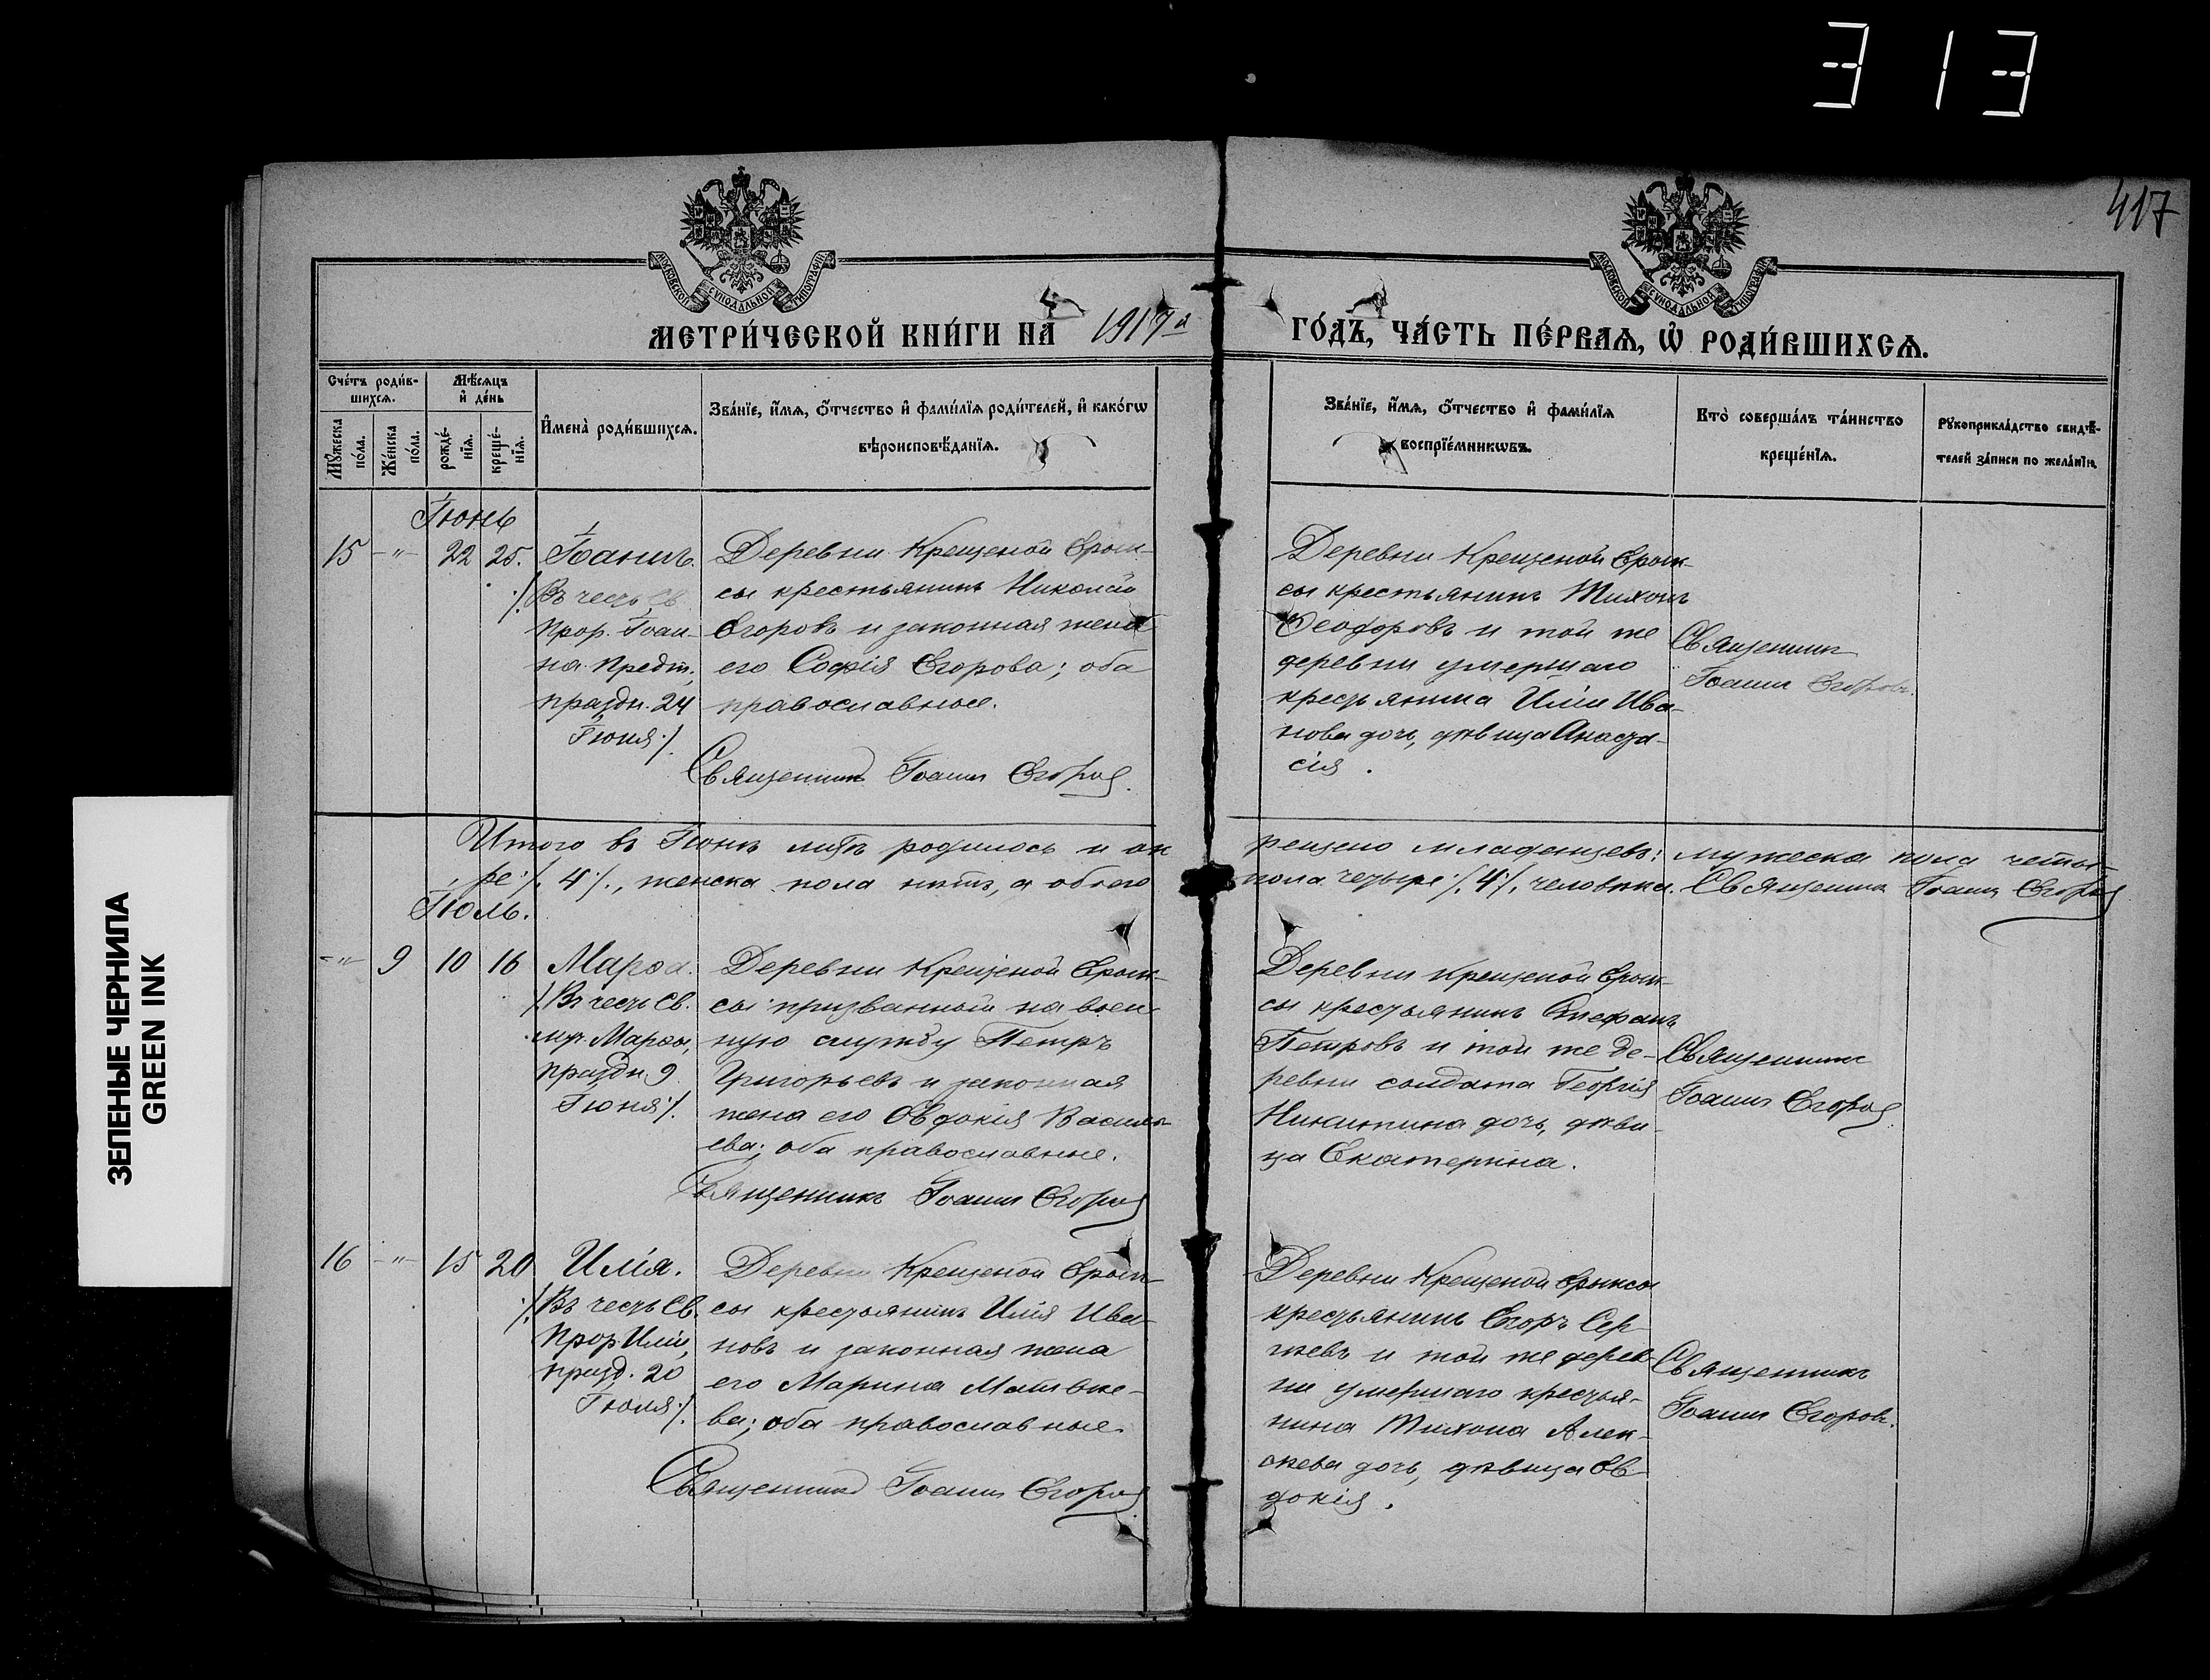 313
417
МОСКОВСКОЙ СѴНОДАЛЬНОЙ ТИПОГРАФІИ
МОСКОВСКОЙ СѴНОДАЛЬНОЙ ТИПОГРАФІИ
МЕТРИ́ЧЕСКОЙ КНИ́ГИ НА 1917й ГО́ДЪ, ЧА́СТЬ ПЕ́РВАѦ, Ѡ҆ РОДИ́ВШИХСѦ.
Сче́тъ роди́в-
шихсѧ.
Мꙋ́жеска по́ла.
Же́нска по́ла.
Мѣ́сѧцъ и҆ де́нь
рожде́-нїѧ.
креще́-нїѧ.
И҆мена̀ роди́вшихсѧ.
Зва́нїе, и҆́мѧ, ѻ҆́тчество и҆ фами́лїѧ роди́телей, и҆ како́гѡ
вѣроисповѣ́данїѧ.
Зва́нїе, и҆́мѧ, ѻ҆́тчество и҆ фами́лїѧ
воспрїе́мникѡвъ.
Кто̀ соверша́лъ та́инство
креще́нїѧ.
Рꙋкоприкла́дство свидѣ́-
телей за́писи по жела́нїю.
Іюнь
15 -"- 22 25. Іоаннъ.
/Въ честь Св.
прор. Іоан-
на Предт.,
праздн. 24
Іюня/.
Деревни Крещеной Ерык-
сы крестьянинъ Николай
Егоровъ и законная жена
его Софія Егорова; оба
православные.
Священникъ Іоаннъ Егоровъ.
Деревни Крещеной Ерык-
сы крестьянинъ Тихонъ
Ѳеодоровъ и той же
деревни умершаго
крестьянина Иліи Ива-
нова дочь, дѣвица Анаста-
сія.
Священникъ
Іоаннъ Егоровъ.
Итого въ Іюнѣ мѣсяцѣ родилось и ок
рещено младенцевъ: мужеска пола четы-
ре /4/, женска пола нѣтъ, а обоего
пола четыре /4/ человѣка. Священникъ Іоаннъ Егоровъ
Іюль.
-"- 9 10 16 Марѳа.
/Въ честь Св.
муч. Марѳы,
праздн. 9
Іюня/.
Деревни Крещеной Ерык-
сы призванный на воен-
ную службу Петръ
Григорьевъ и законная
жена его Евдокія Василь-
ева; оба православные.
Священникъ Іоаннъ Егоровъ
Деревни Крещеной Ерык-
сы крестьянинъ Стефанъ
Петровъ и той же де-
ревни солдата Георгія
Никитина дочь, дѣви-
ца Екатерина.
Священникъ
Іоаннъ Егоровъ
16 -"- 15 20 Илія.
/Въ честь Св.
Прор. Иліи,
празд. 20
Іюля/.
Деревни Крещеной Ерык-
сы крестьянинъ Илія Ива-
новъ и законная жена
его Марина Матвѣе-
ва; оба православные.
Священникъ Іоаннъ Егоровъ
Деревни Крещеной Ерыксы
крестьянинъ Егоръ Сер-
гѣевъ и той же дерев-
ни умершаго крестья-
нина Тихона Алек-
сѣева дочь, дѣвица Ев-
докія.
Священникъ
Іоаннъ Егоровъ.
ЗЕЛЕНЫЕ ЧЕРНИЛА
GREEN INK